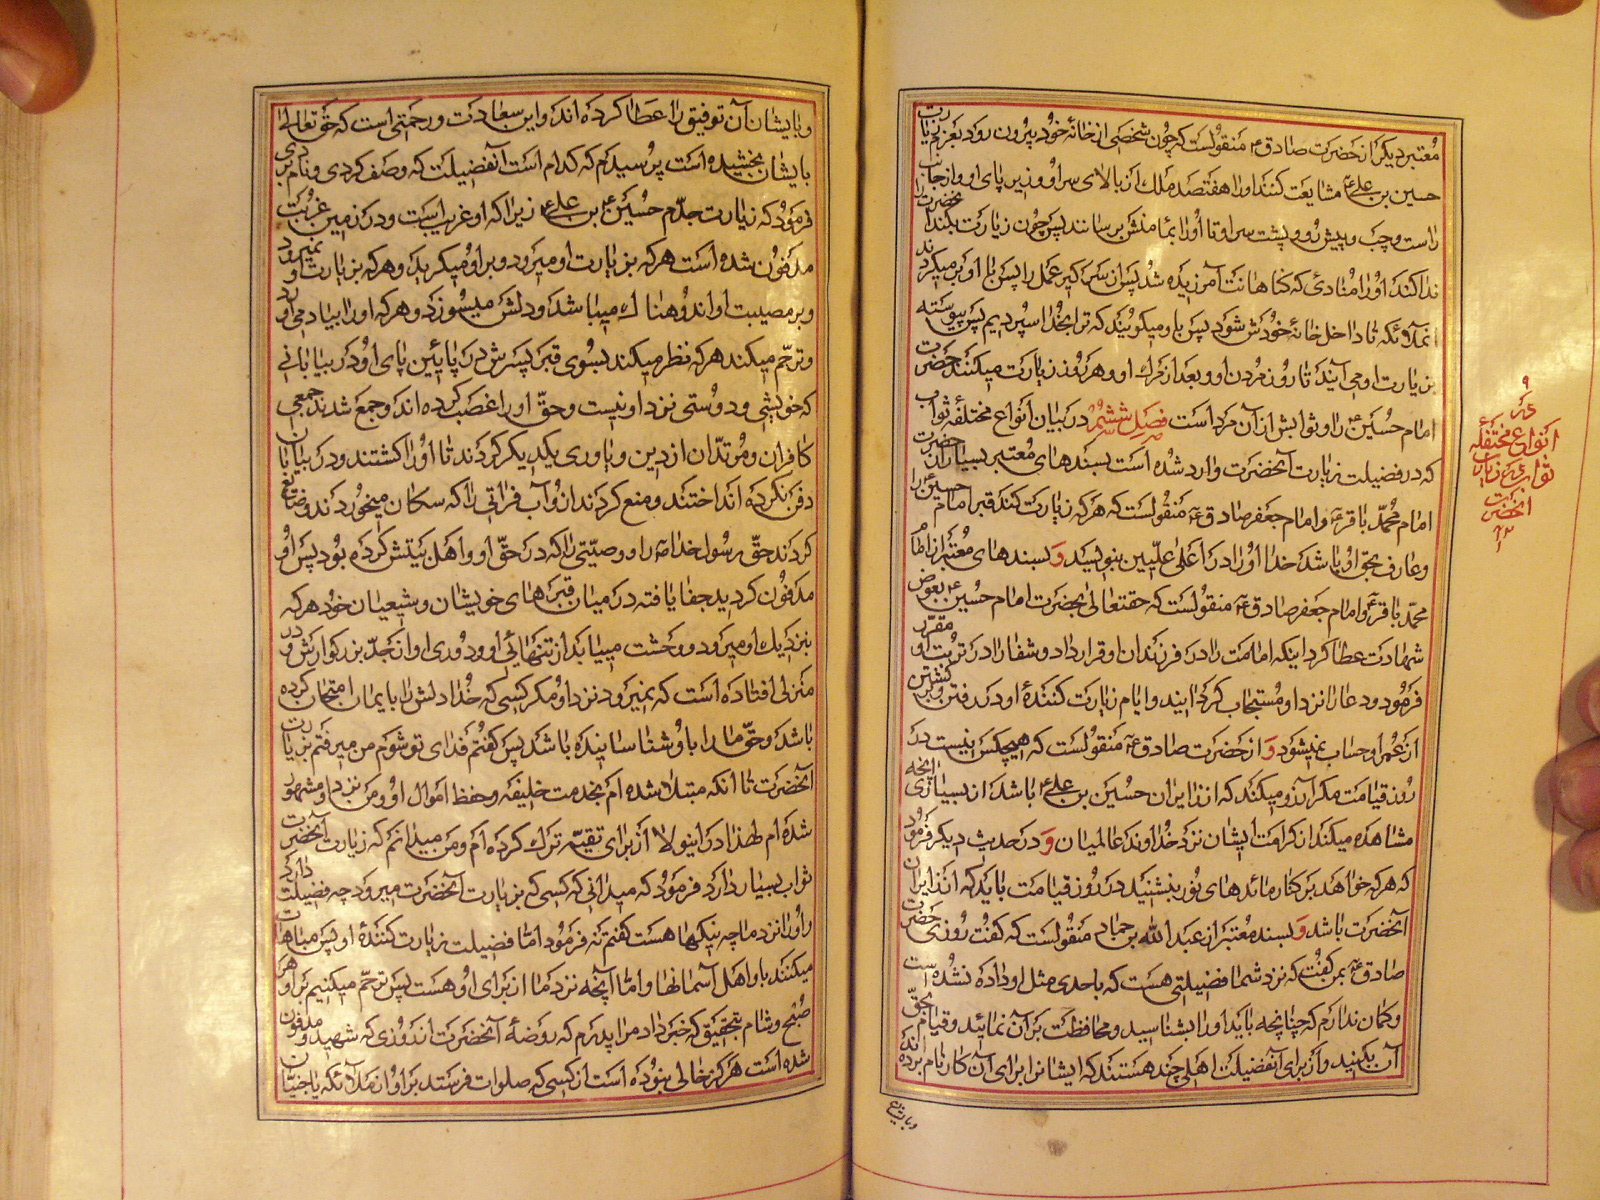 معتبر دیکر از حضرت صادق ع منقولست که چون شخصی از خانهٔ خود بیرون رود بعزم زیارت
حسین بن علی ع مشایعت کنند او را هفتصد ملک از بالای سر او و زیر پای او و از جانب
راست و چپ و پیش رو و پشت سر او تا او را بمأمنش برسانند پس چون زیارت بکند آنحضرت را
ندا کند او را منادی که کناهانت آمرزیده شد پس از سر کیر عمل را پس با او برمیکردند
آنملائکه تا داخل خانهٔ خودش شود پس باو میکویند که ترا بخدا سپردیم پس پیوسته
بزیارت او می آیند تا روز مردن او و بعد از مرك او و هر روز زیارت میکنند حضرت
امام حسین ع را و ثوابش از آن مرد است فصل ششم در بیان انواع مختلفهٔ ثواب
که در فضیلت زیارت آنحضرت وارد شده است بسندهای معتبر بسیار از حضرت
امام محمد باقر ع و امام جعفر صادق ع منقولست که هر که زیارت کند قبر امام حسین ع را
و عارف بحق او باشد خدا او را در اعلی علیین بنویسد و بسندهای معتبر از امام
محمد باقر ع و امام جعفر صادق ع منقولست که حقتعالی بحضرت امام حسین ع بعوض
شهادت عطا کرد اینکه امامت را در فرزندان او قرار داد و شفا را در تربت او مقرر
فرمود و دعا را نزد او مستجاب کردانید و ایام زیارت کنندهٔ او در رفتن و برکشتن
از عمر او حساب نمیشود و از حضرت صادق ع منقولست که هیچکس نیست در
روز قیامت مکر آرزو میکند که از زایران حسین بن علی ع باشد از بسیاری آنچه
مشاهده میکند از کرامت ایشان نزد خداوند عالمیان و در حدیث دیکر فرمود
که هر که خواهد بر کنار مائدهای نور بنشیند در روز قیامت باید که از زایران
آنحضرت باشد و بسند معتبر از عبد الله بن حماد منقولست که کفت روزی حضرت
صادق ع بمن کفت که نزد شما فضیلتی هست که باحدی مثل او داده نشده است
و کمان ندارم که چنانچه باید او را بشناسید و محافظت بر آن نمائید و قیام بحق
آن بکنید و از برای آنفضیلت اهلی چند هستند که ایشانرا برای آن کار نام برده اند
و بایشان
انواع مختلفه
ثواب زیارت
آنحضرت
و بایشان آن توفیق را عطا کرده اند و این سعادت و رحمتی است که حقتعالی
بایشان بخشیده است پرسیدم که کدام است آنفضیلت که وصف کردی و نام بردی
فرمود که زیارت جدم حسین ع بن علی ع زیرا که او غریب است و در زمین غربت
مدفون شده است هر که بزیارت او میرود بر او میکرید و هر که بزیارت او نمیرود
بر مصیبت او اندوهناك میباشد و دلش میسوزد و هر که او را بیاد می آورد
و ترحم میکند هر که نظر میکند بسوی قبر پسرش در پائین پای او در بیابانی
که خویشی و دوستی نزد او نیست و حق او را غصب کرده اند و جمع شدند جمعی
کافران و مرتدان از دین و یاوری یکدیکر کردند تا او را کشتند و در بیابان
دفن نکرده انداختند و منع کردند از او آب فراتی را که سکان میخوردند و ضایع
کردند حق رسول خدا ص را و وصیتی را که در حق او و اهل بیتش کرده بود پس او
مدفون کردید جفا یافته در میان قبرهای خویشان و شیعیان خود هر که
بنزدیك او میرود وحشت مییابد از تنهائی او و دوری او از جد بزرکوارش و در
منزلی افتاده است که نمیرود نزد او مکر کسی که خدا دلش را بایمان امتحان کرده
باشد و حق ما را باو شناسانیده باشد پس کفتم فدای تو شوم من میرفتم بزیارت
آنحضرت تا آنکه مبتلا شده ام بخدمت خلیفه و حفظ اموال او و من نزد او مشهور
شده ام لهذا در اینولا از برای تقیه ترك کرده ام و من میدانم که زیارت آنحضرت
ثواب بسیار دارد فرمود که میدانی که کسی که بزیارت آنحضرت میرود چه فضیلت دارد
و او را نزد ما چه نیکیها هست کفتم نه فرمود اما فضیلت زیارت کنندهٔ او پس مباهات
میکنند باو اهل آسمانها و اما آنچه نزد ما از برای او هست پس ترحم میکنیم بر او هر
صبح و شام بتحقیق که خبر داد مرا پدرم که روضهٔ آنحضرت از روزی که شهید و مدفون
شده است هرکز خالی نبوده است از کسی که صلوات فرستد بر او از ملائکه یا جنیان